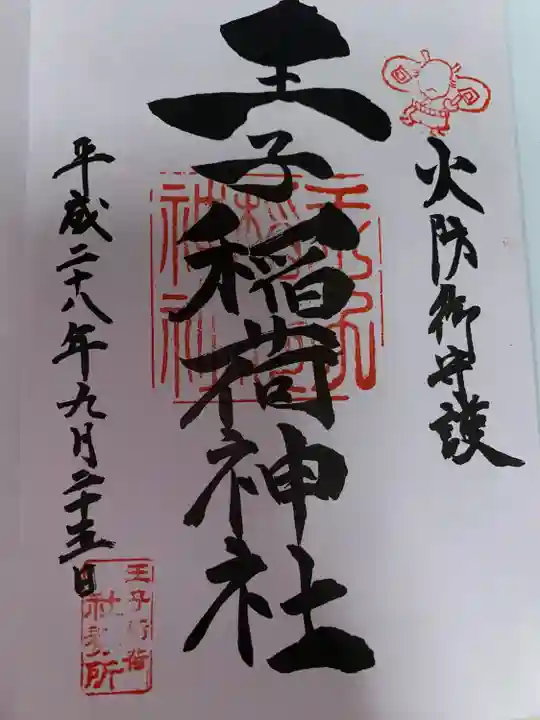 火防御守護
王子稲荷神社
王子稲荷神社
平成二十八年九月二十五日
王子稲荷
社務所